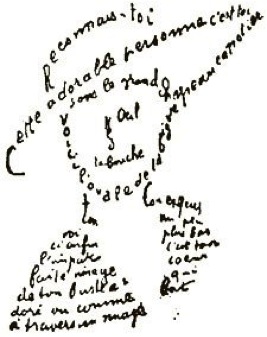 Reconnais-toi
Cette adorable personne c'est toi
sous le grand chapeau canotier
Oeil
la bouche
Voici l'ovale de ta figure
ton
Cou exquis
voi
ci enfin
l'impar
faite image
de ton buste a
doré vu comme
à travers un nuage
un peu
plus bas
c'est ton
coeur
qui
bat